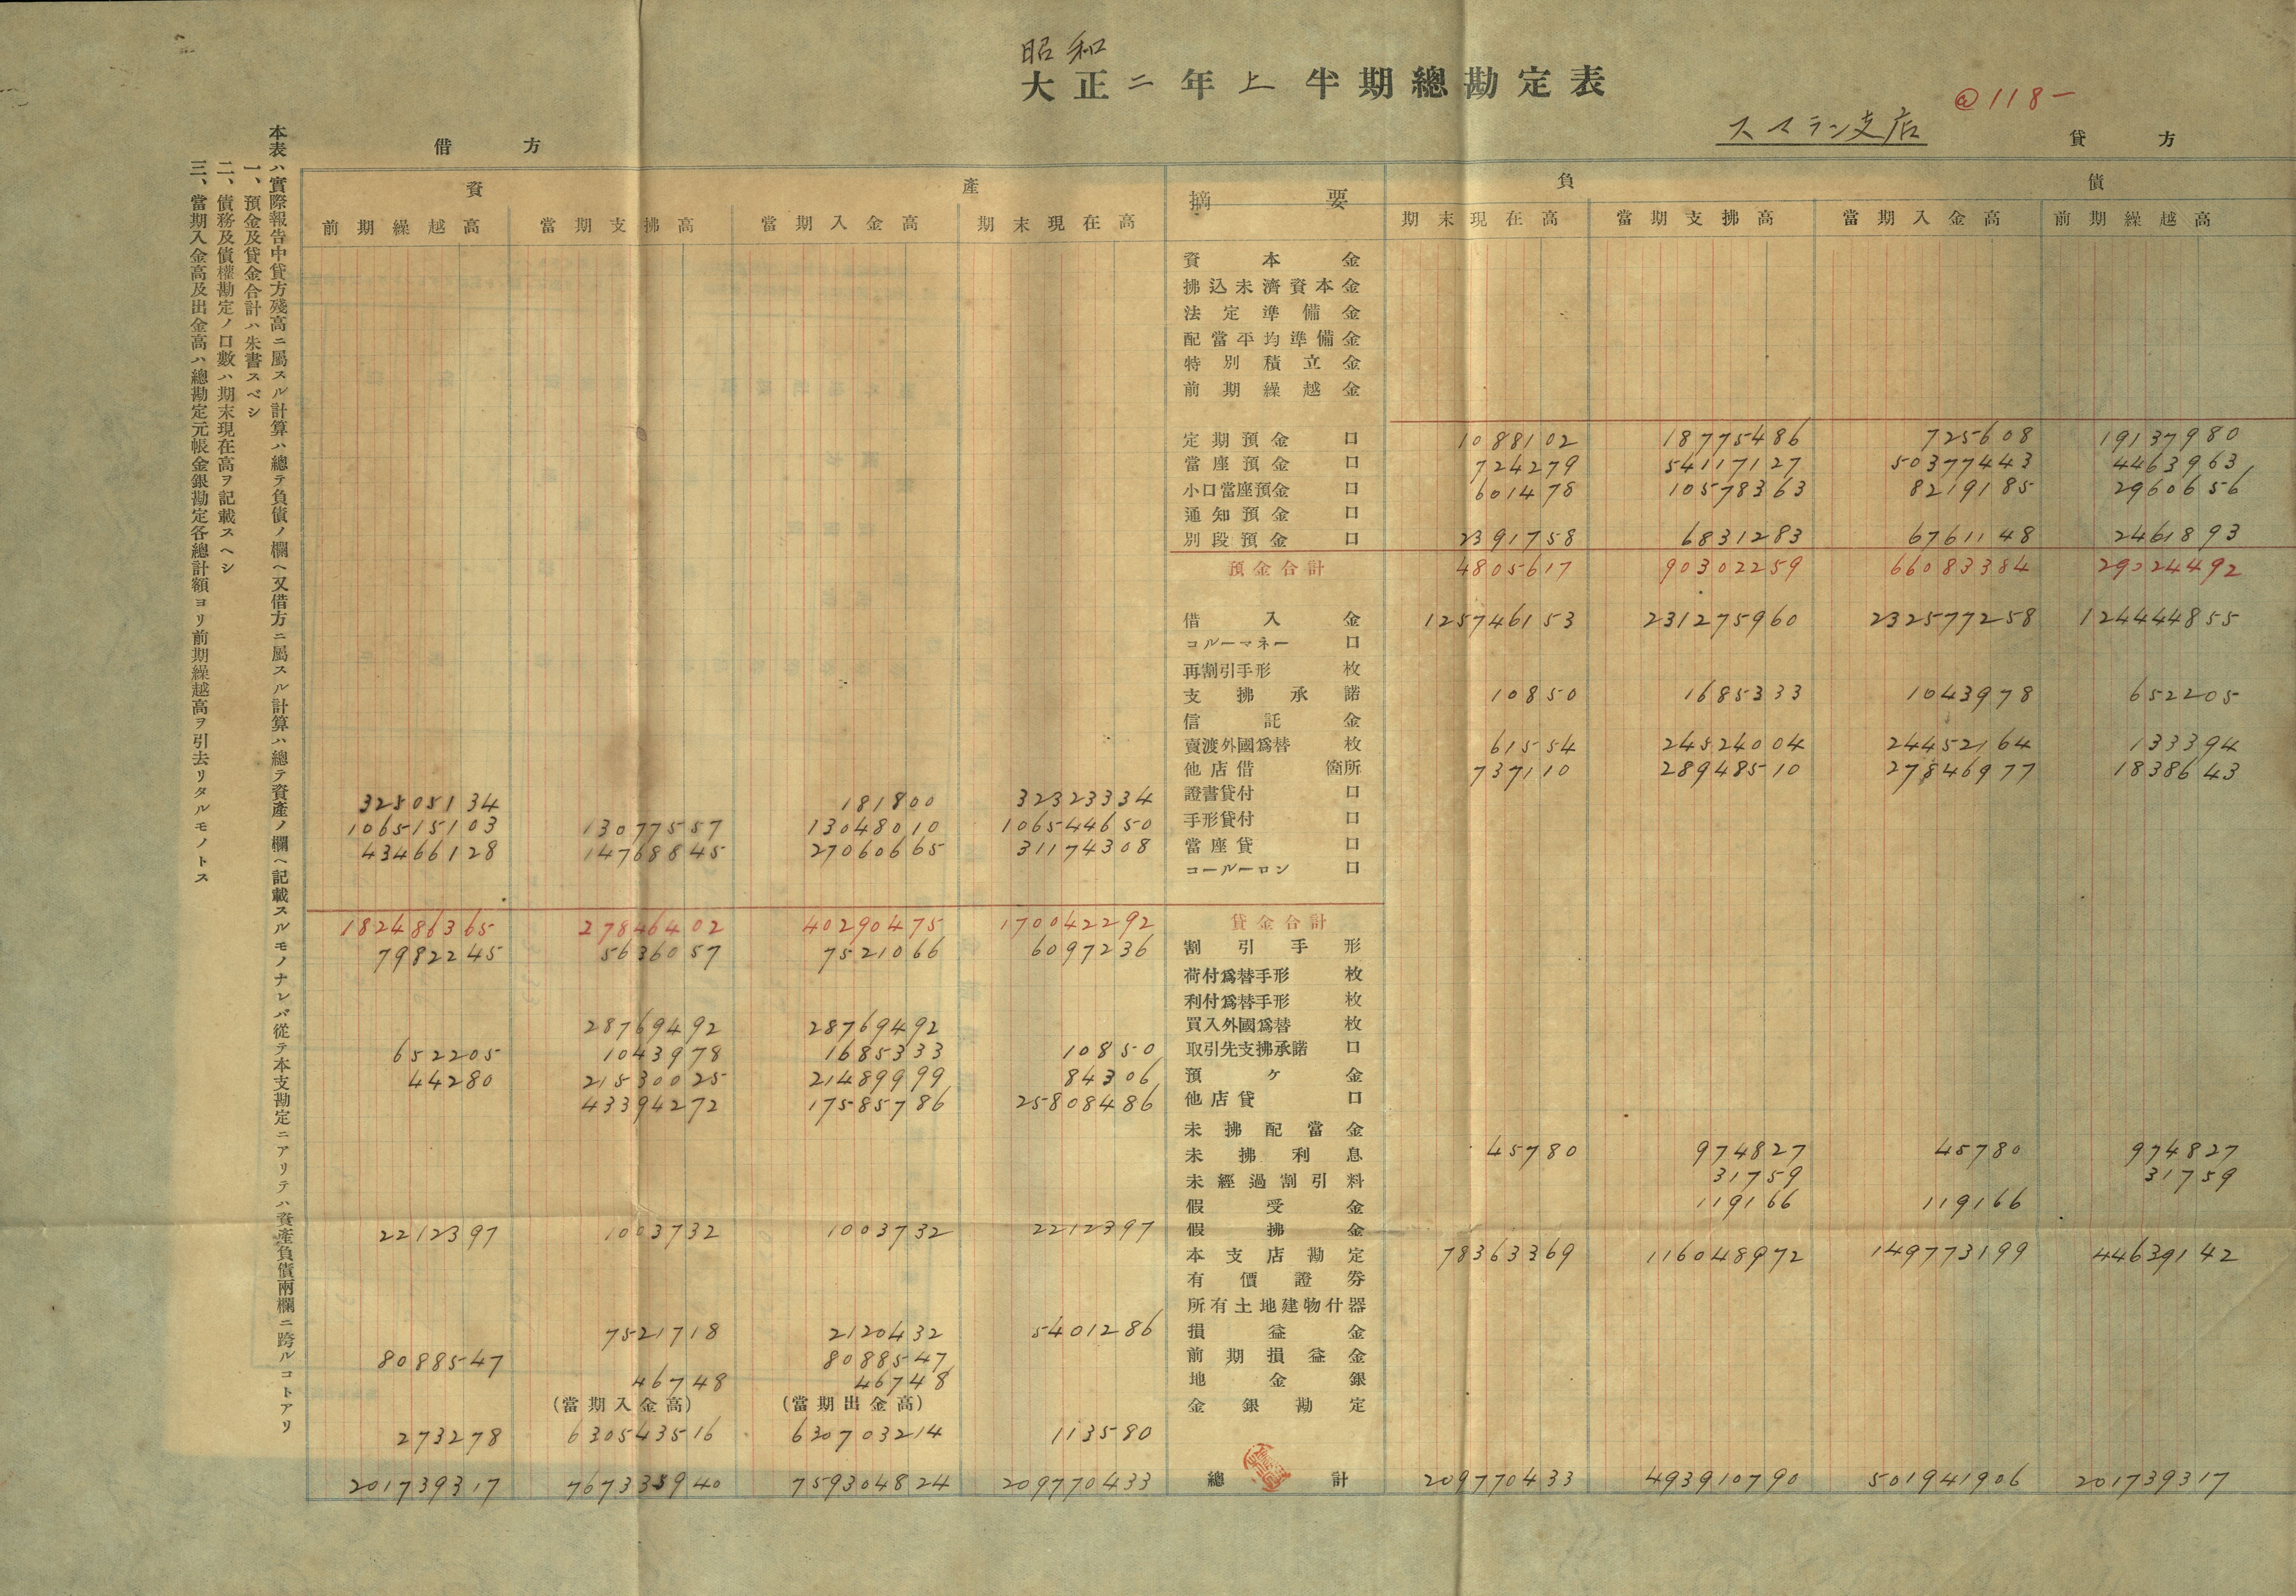 昭和
大正二年上半期總勘定表
@118-
スマラン支店
借方
貸方
資產
摘要
負債
前期繰越高 當期支拂高 當期入金高 期末現在高 期末現在高 當期支拂高 當期入金高 前期繰越高
資本金
拂込未濟資本金
法定準備金
配當平均準備金
特別積立金
前期繰越金
定期預金 口 1088102 18775486 725608 19137980
當座預金 口 724279 54117127 50377443 4463963
小口當座預金 口 601478 10578363 8219185 2960656
通知預金 口
別段預金 口 2391758 6831283 6761148 2461893
預金合計 4805617 90302259 66083384 29024492
借入金 125746153 231275960 232577258 124444855
コルーマネー 口
再割引手形 枚
支拂承諾 10850 1685333 1043978 652205
信託金
賣渡外國爲替 枚 61554 24524004 24452164 133394
他店借 箇所 737110 28948510 27846977 1838643
32505134 181800 32323334 證書貸付 口
106515103 13077557 13048010 106544650 手形貸付 口
43466128 14768845 27060665 31174308 當座貸 口
コールーロン 口
182486365 27846402 40290475 170042292 貸金合計
7982245 5636057 7521066 6097236 割引手形
荷付爲替手形 枚
利付爲替手形 枚
28769492 28769492 買入外國爲替 枚
652205 1043978 1685333 10850 取引先支拂承諾 口
44280 21530025 21489999 84306 預ケ金
43394272 17585786 25808486 他店貸 口
未拂配當金
未拂利息 45780 974827 45780 974827
未經過割引料 31759 31759
假受金 119166 119166
2212397 1003732 1003732 2212397 假拂金
本支店勘定 78363369 116048972 149773199 44639142
有價證券
所有土地建物什器
7521718 2120432 5401286 損益金
8088547 8088547 前期損益金
46748 46748 地金銀
(當期入金高) (當期出金高) 金銀勘定
273278 630543516 630703214 113580
201739317 767335940 759304824 209770433 總計 209770433 493910790 501941906 201739317
本表ハ實際報告中貸方殘高ニ屬スル計算ハ總テ負債ノ欄ヘ又借方ニ屬スル計算ハ總テ資產ノ欄ヘ記載スルモノナレバ從テ本支勘定ニアリテハ資產負債兩欄ニ跨ルコトアリ
一、預金及貸金合計ハ朱書スベシ
二、債務及債權勘定ノ口數ハ期末現在高ヲ記載スヘシ
三、當期入金高及出金高ハ總勘定元帳金銀勘定各總計額ヨリ前期繰越高ヲ引去リタルモノトス